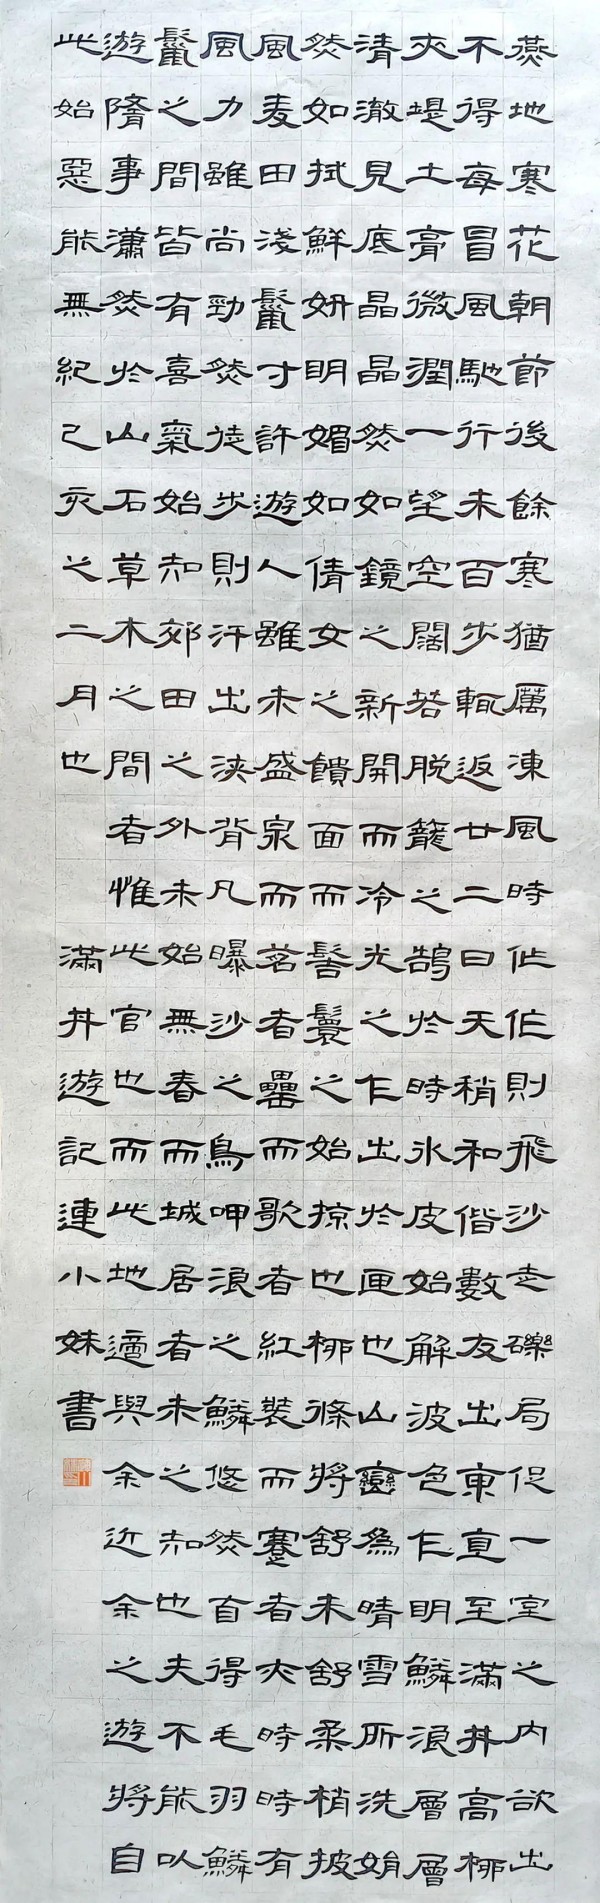 燕地寒花朝節後餘寒猶厲凍風時作作則飛沙走礫局促一室之內欲出
不得每冒風馳行未百步輒返廿二日天稍和偕數友出東直至滿井高柳
夾堤土膏微潤一望空闊若脫籠之鵠於時冰皮始解波色乍明鱗浪層層
清澈見底晶晶然如鏡之新開而冷光之乍出於匣也山巒為晴雪所洗娟
然如拭鮮妍明媚如倩女之饋面而髻鬟之始掠也柳條將舒未舒柔梢披
風麦田淺鬣寸許遊人雖未盛泉而茗者罍而歌者紅裝而蹇者亦時時有
風力雖尚勁然徒步則汗出浹背凡曝沙之鳥呷浪之鱗悠然自得毛羽鱗
鬣之間皆有喜氣始知郊田之外未始無春而城居者未之知也夫不能以
遊墮事瀟然於山石草木之間者惟此官也而此地適與余近余之遊將自
此始惡能無紀己亥之二月也
滿井遊記連小妹書